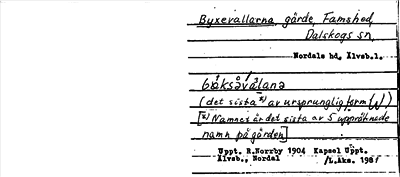 Byxevallarna, gårde, Famshed,
Dalskogs sn,
Nordals hd, Älvsb.l.
(det sista *) av ursprunglig form (U)
[*) Namnet är det sista av 5 uppräknade
namn på gården]
Uppt. R.Norrby 1904 Kapsel Uppt.
Älvsb., Nordal